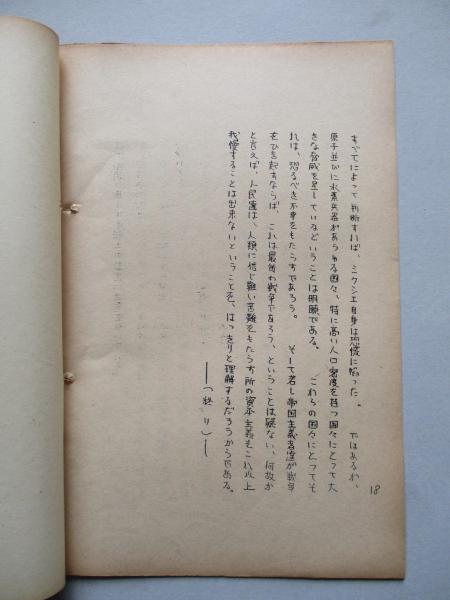 すべてによって判断すれば、ミクシェ自身は恐慌に陥った。　ではあるが、
原子並びに水素兵器があらゆる国々、特に高い人口密度を持つ国々にとって大
きな脅威を呈しているということは明瞭である。　これらの国々にとってそ
れは、恐るべき不幸をもたらすであろう。　そして若し帝国主義者達が戦争
をひき起すならば、これは最後の戦争であろう、ということは疑ない、何故か
と言えば、人民達は、人類に信じ難い苦難をもたらす所の資本主義をこれ以上
我慢することは出来ないということを、はっきりと理解するだろうからである。
――(終り)――
18